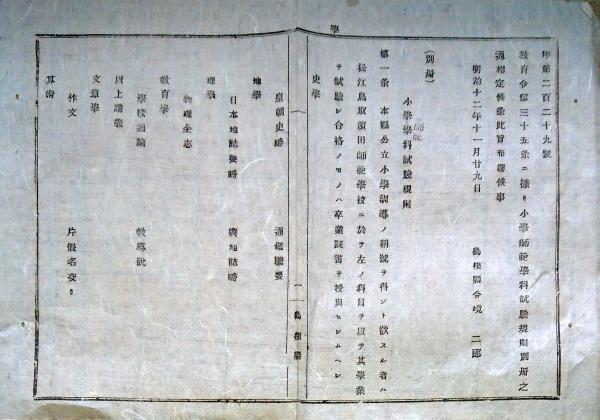 學
甲第二百二十九號
教育令第三十五条ニ據リ小學師範學科試驗規則別冊之
通相定候条此旨布達候事
明治十二年十一月廿九日
島根縣令境二郎
(別冊)
小學師範學科試驗規則
第一条 本縣公立小學訓導ノ稱號ヲ得ント欲スル者ハ
松江鳥取濱田師範學校ニ於テ左ノ科目ヲ以テ其學業
ヲ試驗シ合格ノモノハ卒業證書ヲ授與セシムヘシ
史學
一 島根縣
皇朝史略 通鑑擥要
地學
日本地誌要略 輿地誌略
理學
物理全志
教育學
學校通論 教導説
口上講義
文章學
作文 片假名交リ
算術